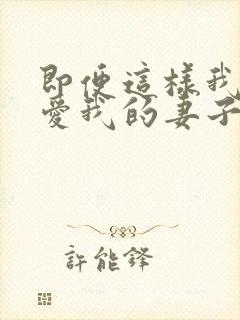 即便這樣我
愛我的妻子
許能鋒